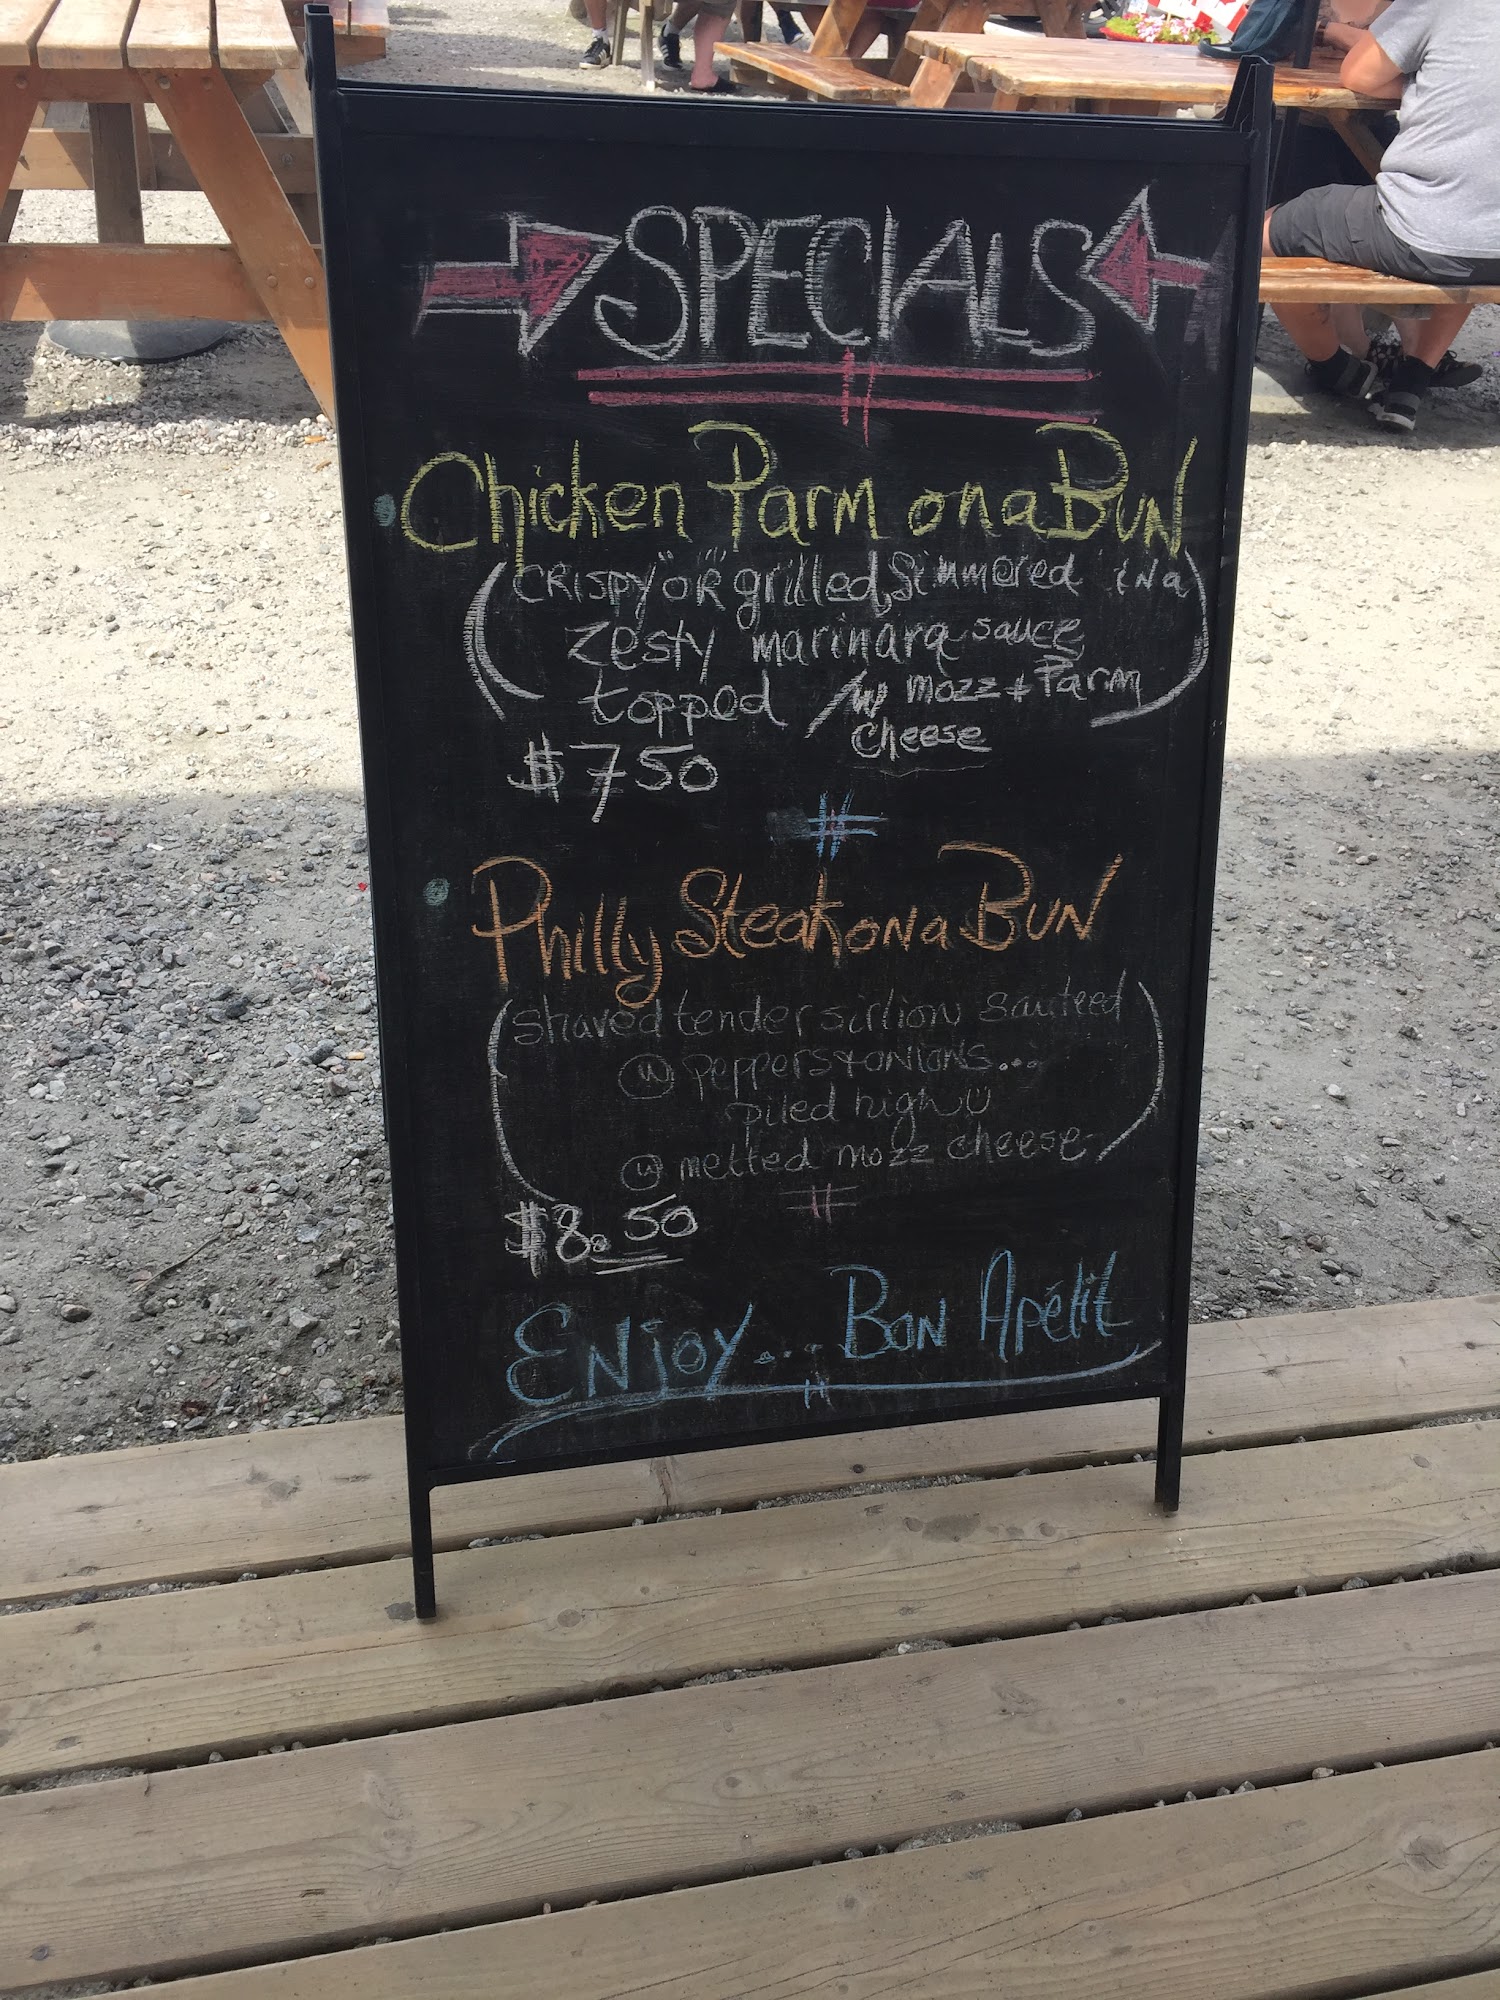 SPECIALS
Chicken Parm on a BUN
(CRISPY "OR" grilled, Simmered in a
zesty marinara sauce
topped /w mozz + Parm
cheese)
$7 50
Philly Steak on a BUN
(shaved tender sirlion sauteed
@w peppers + onions...
piled high
@w melted mozz cheese)
$8.50
ENjoy... BoN Apétit